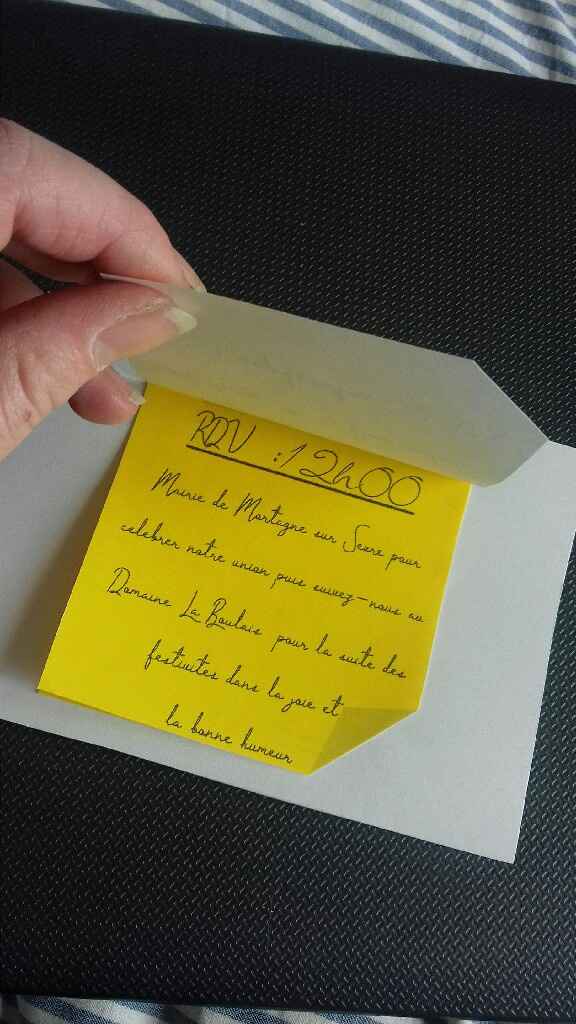 RDV : 12h00
Mairie de Mortagne sur Sevre pour
celebrer notre union puis suivez-nous au
Domaine La Boulais pour la suite des
festivites dans la joie et
la bonne humeur